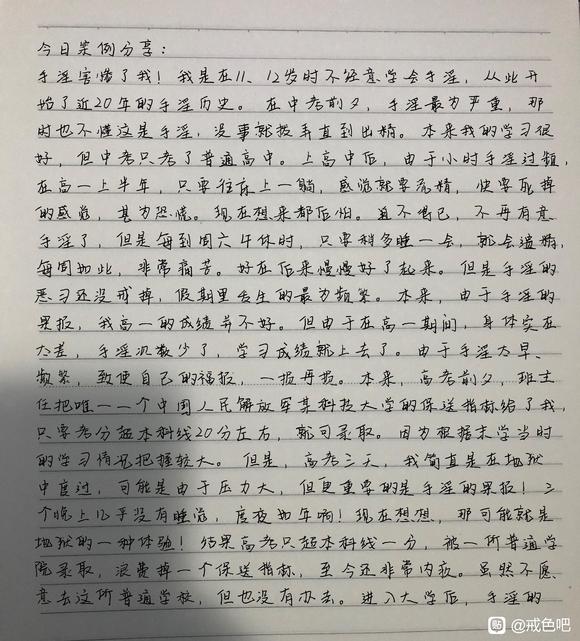 今日案例分享：
手淫害惨了我！我是在11、12岁时不经意学会手淫，从此开
始了近20年的手淫历史。在中考前夕，手淫最为严重，那
时也不懂这是手淫，没事就拨弄直到出精。本来我的学习很
好，但中考只考了普通高中。上高中后，由于小时手淫过频，
在高一上半年，只要往床上一躺，感觉就要泄精，快要死掉
的感觉，甚为恐慌。现在想来都后怕。迫不得已，不再有意
手淫了，但是每到周六午休时，只要稍多睡一会，就会遗精，
每周如此，非常痛苦。好在后来慢慢好了起来。但是手淫的
恶习还没戒掉，假期里发生的最为频繁。本来，由于手淫的
果报，我高一的成绩并不好。但由于在高一期间，身体实在
太差，手淫次数少了，学习成绩就上去了。由于手淫太早、
频繁，致使自己的福报，一损再损。本来，高考前夕，班主
任把唯一一个中国人民解放军某科技大学的保送指标给了我，
只要考分超本科线20分左右，就可录取。因为根据末学当时
的学习情况把握较大。但是，高考三天，我简直是在地狱
中度过，可能是由于压力大，但更重要的是手淫的果报！三
个晚上几乎没有睡觉，度夜如年啊！现在想想，那可能就是
地狱的一种体验！结果高考只超本科线一分，被一所普通学
院录取，浪费掉一个保送指标，至今还非常内疚。虽然不愿
意去这所普通学校，但也没有办法。进入大学后，手淫的
贴 @戒色吧